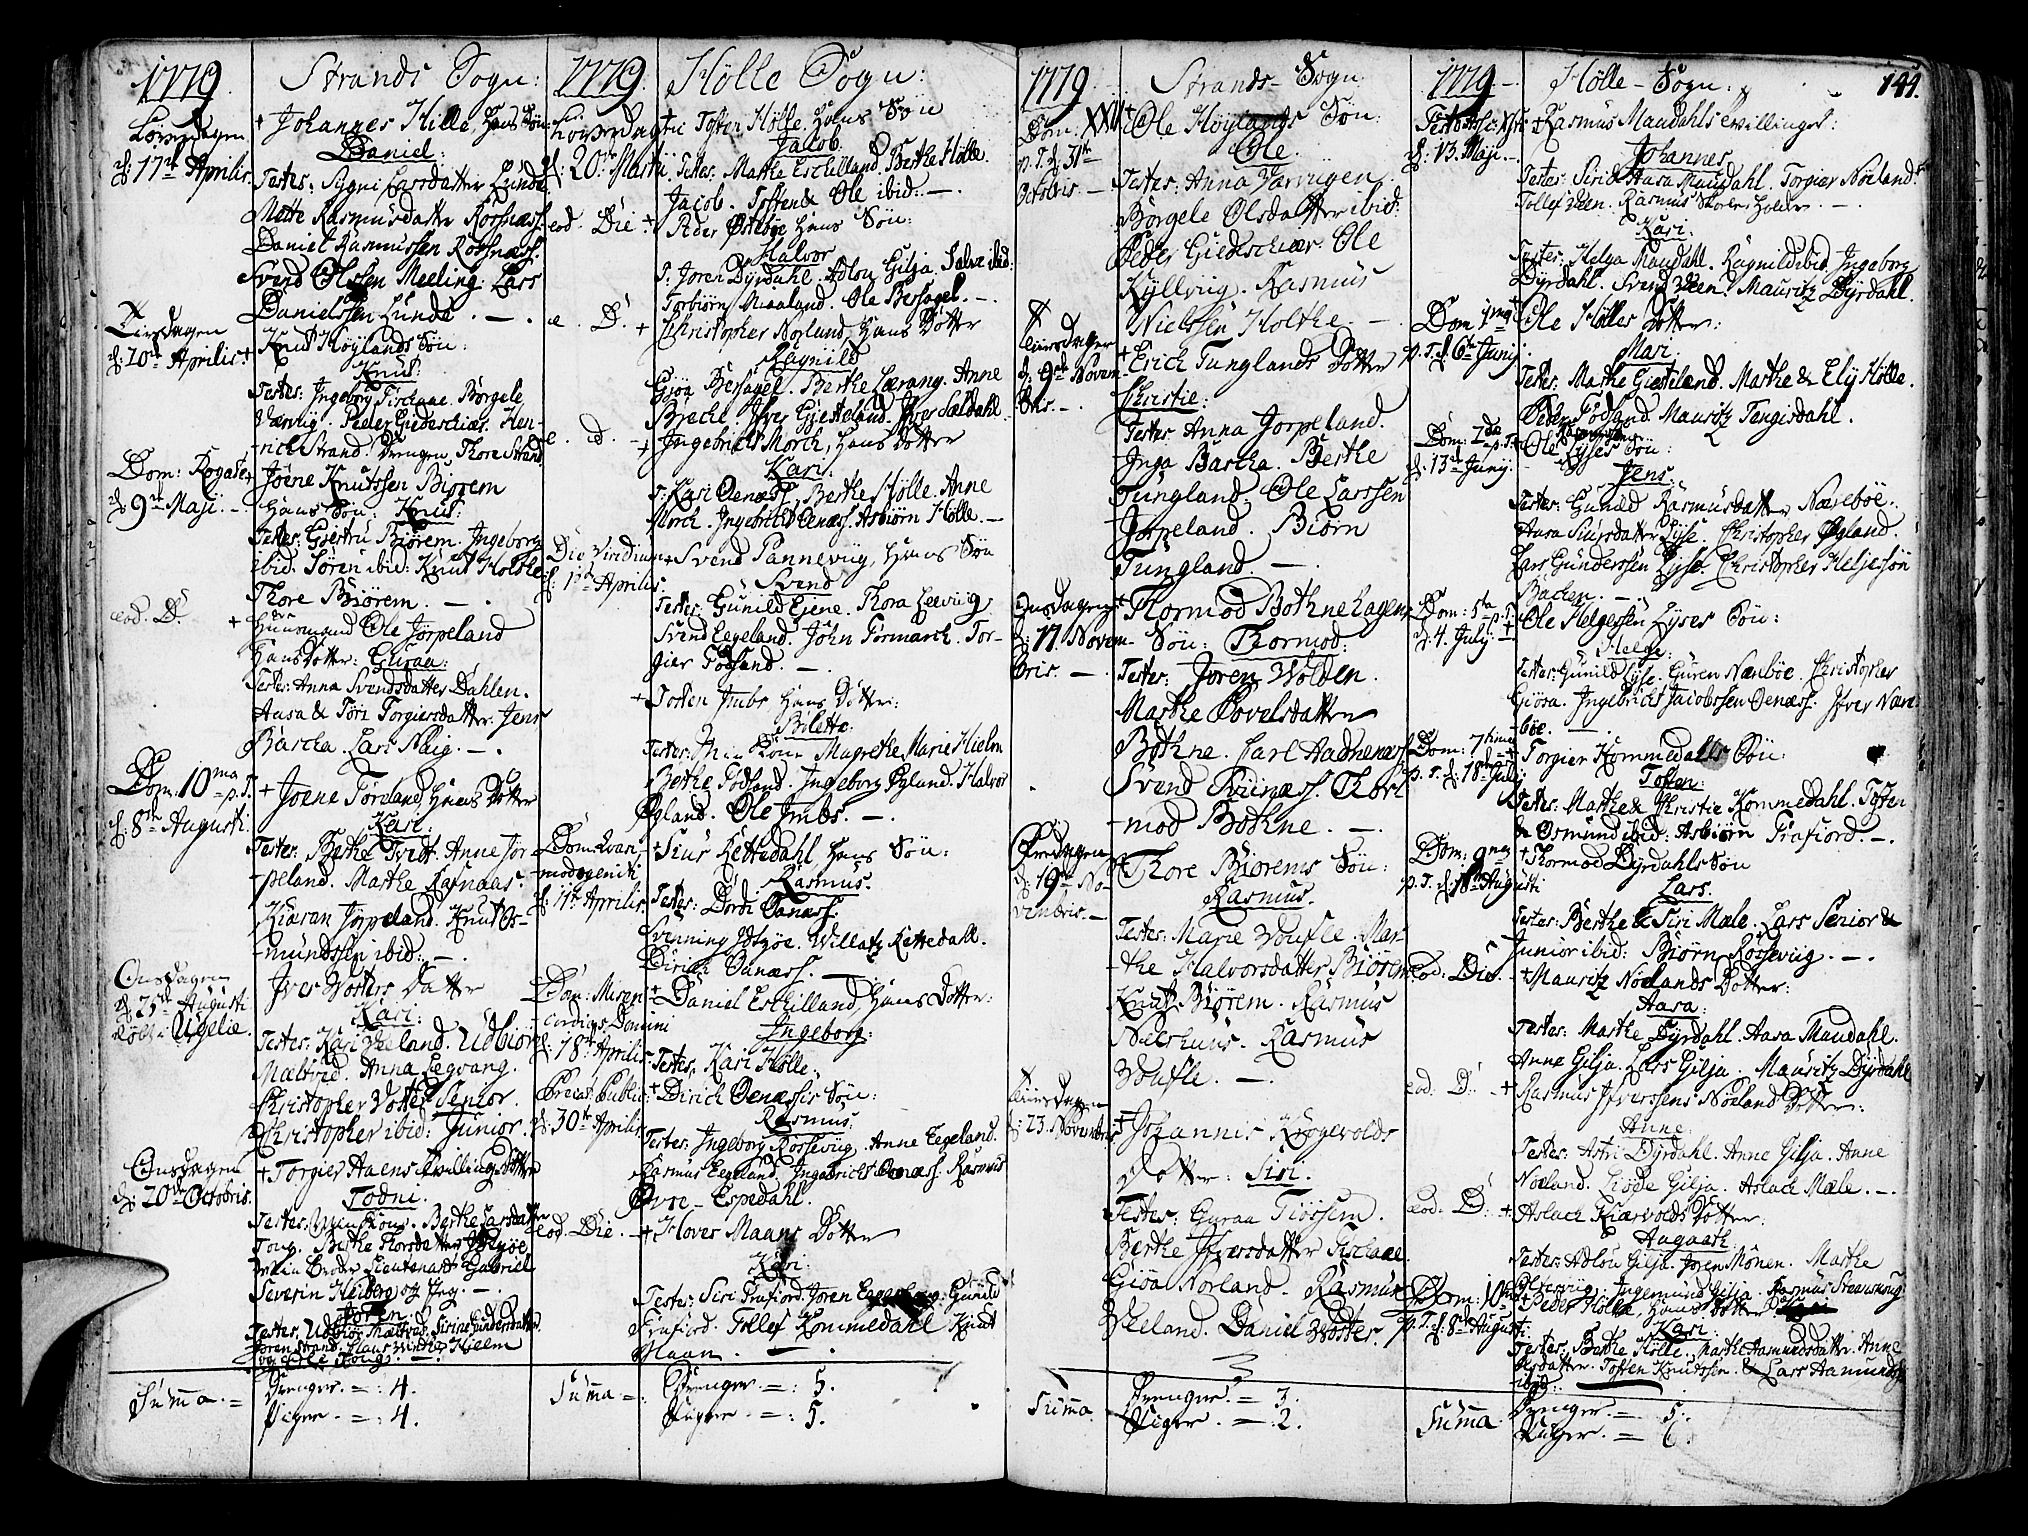 1779. Strands Sogn:
Løverdagen
d: 17de Aprilis.
+ Johannes Hille, Hans Søn:
Daniel:
Testes: Sygni Larsdatter Lunde
Mette Rasmusdatter Rossnæss.
Daniel Rasmussen Rossnæss.
Svend Olssen Meeling. Lars
Danielssen Lunde. —.
Tirsdagen
d: 20de Aprilis +
Knud Høylands Søn:
Knud:
Testes: Ingeborg Fischaae. Børgele
Værvig. Peder Giedeschiær. Hen-
rich Strand. Drengen, Thore Strand.
Dom: Rogate +
d: 9de Maji. —
Jøene Knutssen Biørem
Hans Søn: Knud:
Testes: Giertru Biørem. Ingeborg
ibid. Søren ibid: Knut Holthe
Thore Biørem. —.
eod. D. +
Huusmand Ole Jørpeland
Hans Dotter: Guraa:
Testes: Anna Svendsdatter Dahlen.
Aasa & Tøri Torgiersdatter. Jens
Barcka. Lars Naig. —.
Dom: 10ma p. T.
d: 8de Augusti.
+ Joene Tøreland, Hans Dotter
Kari:
Testes: Berthe Tvedt. Anne Jør-
peland. Marthe Rafnaas.
Kiaran Jørpeland. Knut Os-
mundssen ibid: —.
Onsdagen
d: 25de Augusti
Iver Vosters Datter
Kari:
Testes: Kari Vheland. Udbiør
Mæltvid. Anna Legvang.
Christopher Voster Senior.
Christopher ibid: Junior.
Onsdagen
d: 20de Octobris.
+ Torgier Aaens Tvillinge Døttre
Todni.
Testes: Min Kone. Berthe Larsdatter
Toug. Berthe Thorsdatter Idsøe
Min Broder Lieutenant Gabriel
Severin Heiberg og Jeg. —.
Joren
Testes: Udbiør Mæltved. Siri Gundersdatter
Joren Strand. Claus Wincke Hielm
og Ole Toug. —.
Summa. =
Drenger. =: 4.
Piger. =: 4.
1779 Hølle Sogn:
Løverdagen
d: 20de Martii
Tosten Hølle. Hans Søn
Jacob.
Testes: Marthe Eschilland. Berthe Hølle.
Jacob. Tosten & Ole ibid: —.
eod. Die +
Peder Østebøe Hans Søn:
Halvor
T: Joren Dyrdahl. Adlou Gilja. Salve ibid:
Torbiørn Maaland. Ole Bersagel. —.
e. D. +
Christopher Norland, Hans Dotter
Ragnild
Giøa Bersagel. Berthe Lærang. Anne
Brecke. Iver Giesteland. Iver Sældahl.
e. d. +
Ingebricts Morch, Hans Dotter
Kari.
T: Kari Oenæss. Berthe Hølle. Anne
Morch. Ingebricht Oenæss. Asbiørn Hølle. —.
Die Viridium +
d: 1ste Aprilis
Svend Pannevig, Hans Søn
Svend
Testes: Gunild Eiene. Thora Levvig
Svend Eegeland. John Formarch. Tor-
gier Fossand. —.
+ Tosten Imbs Hans Dotter:
Bilette.
Testes: Min Kone Magrethe Marie Hielm
Berthe Fossand. Ingeborg Øgland. Halvor
Øgland. Ole Imbs. —.
Dom: Qvasi
modogeniti
d: 11te Aprilis
+ Siur Kettedahl Hans Søn:
Rasmus.
Testes: Dordi Oanæss.
Svenning Idsøe. Willatz Kettedahl.
Dirich Oanæss. —
Dom: Miseri
cordias Domini
d: 18de Aprilis
+ Daniel Eschilland, Hans Dotter:
Ingeborg:
Testes: Kari Hølle.
Preces Public:
d: 30te Aprilis
+ Dirich Oenæssis Søn:
Rasmus:
Testes: Ingeborg Rossevig. Anne Eegeland.
Rasmus Eegeland. Ingebricht Oenæss. Rasmus
Øvre-Espedahl.
eod. Die. —
+ Hover Maans Dotter
Kari:
Testes: Siri Frafiord. Joren Eggebøe. Gunild
Frafiord. Tollef Kommedahl Knut
Maan. —.
Summa =
Drenger. =: 5.
Piger. =: 5.
1779 Strands-Sogn
Dom: XXII
p. T. d: 31te
Octobris. —
+ Ole Høylands Søn:
Ole.
Testes: Anna Varvigen.
Børgele Olsdatter ibid:
Peder Giedeschiær. Ole
Kyllvig. Rasmus
Nielssen Holthe. —
Tiirsdagen
d: 9de Novem-
bris. —
+ Erich Tunglands Dotter
Christie:
Testes: Anna Jorpeland.
Inga Barcka. Berthe
Tungland. Ole Larssen
Jorpeland. Biørn
Tungland. —.
Onsdagen +
d: 17. Novem-
bris. —
Thormod Bothne Hagens
Søn: Thormod:
Testes: Joren Wolden.
Marthe Povelsdatter
Bothne. Carl Aadnenæss.
Svend Qvinæss. Thor-
mod Bothne. —.
Fredagen
d: 19de No-
vembris. —
+ Thore Biørems Søn:
Rasmus.
Testes: Marie Woufle. Mar-
the Halvorsdatter Biørem
Knut Biørem. Rasmus
Nielshuus. Rasmus
Woufle. —.
Tiirsdagen
d: 23. Novembris
+ Johannis Krogevolds
Dotter: Siri.
Testes: Guraa Tiøssem.
Berthe Iversdatter Fischaae
Giøa Norland. Rasmus
Vheland. Daniel Voster.
Summa.
Drenger. = 3.
Piger. = 2.
1779 Hølle-Sogn: 144.
d: 13. Maji.
+ Rasmus Maudahls Tvillinger:
Johannes
Testes: Siri & Aasa Maudahl. Torgier Nøeland.
Tollef Veen. Rasmus
Kari:
Testes: Helga Maudahl. Ragnild ibid. Ingeborg
Dyrdahl. Svend Veen. Mauritz Dyrdahl.
Dom. 1ma
p. T. d: 6te Junij
+ Ole Hølles Dotter:
Mari.
Testes: Marthe Giesteland. Marthe & Elij Hølle.
Peder Fossand. Mauritz Tengisdahl.
Dom: 2da p. T.
d: 13de Junij.
Ole Lyses Søn:
Jens:
Testes: Gunild Rasmusdatter Næsebøe.
Aasa Siursdatter Lyse. Christopher Øgland.
Lars Gunderssen Lyse. Christopher Heljesøn
Bachen. —.
Dom: 5ta p. T.
d: 4. Julij.
Ole Helgessen Lyses Søn:
Helge:
Testes: Gunild Lyse. Guren Næsbøe. Christopher
Giøsa. Ingebricht Jacobssen Oenæss. Iver Næse-
bøe. —.
Dom: 7tima
p. T. d: 18de Julij
Torgier Kommedahls Søn:
Tosten:
Testes: Marthe & Christie Kommedahl. Tosten
& Osmund ibid: Asbiørn Frafiord. —.
Dom: 9na
p. T. d: 1ste Augusti
+ Thormod Dyrdahls Søn
Lars.
Testes: Berthe & Siri Mæle. Lars Senior &
Junior ibid: Biørn Rossevig. —.
eod. Die.
+ Mauritz Nøelands Dotter:
Aasa:
Testes: Marthe Dyrdahl. Aasa Maudahl.
Anne Gilja. Lars Gilja. Mauritz Dyrdahl
eod. D. +
Rasmus Iverssens Nøeland Dotter:
Anne:
Testes: Astri Dyrdahl. Anne Gilja. Anne
Nøeland. Gilja. Aslach Mæle. —.
eod. D. +
Aslach Kiærvolds Dotter:
Aagaath.
Testes: Adlou Gilja. Joren Mønen. Marthe
Ingemund Gilja. Rasmus
Dom: 10ma
p. T. d: 8de Augusti
+ Peder Hølle, Hans Dotter
Kari:
Testes: Berthe Hølle. Marthe Aamundsdatter. Anne
Olsdatter. Tosten Knudssen & Lars Aamunds
ibid. —
Summa
Drenger. = 5.
Piger. = 6.